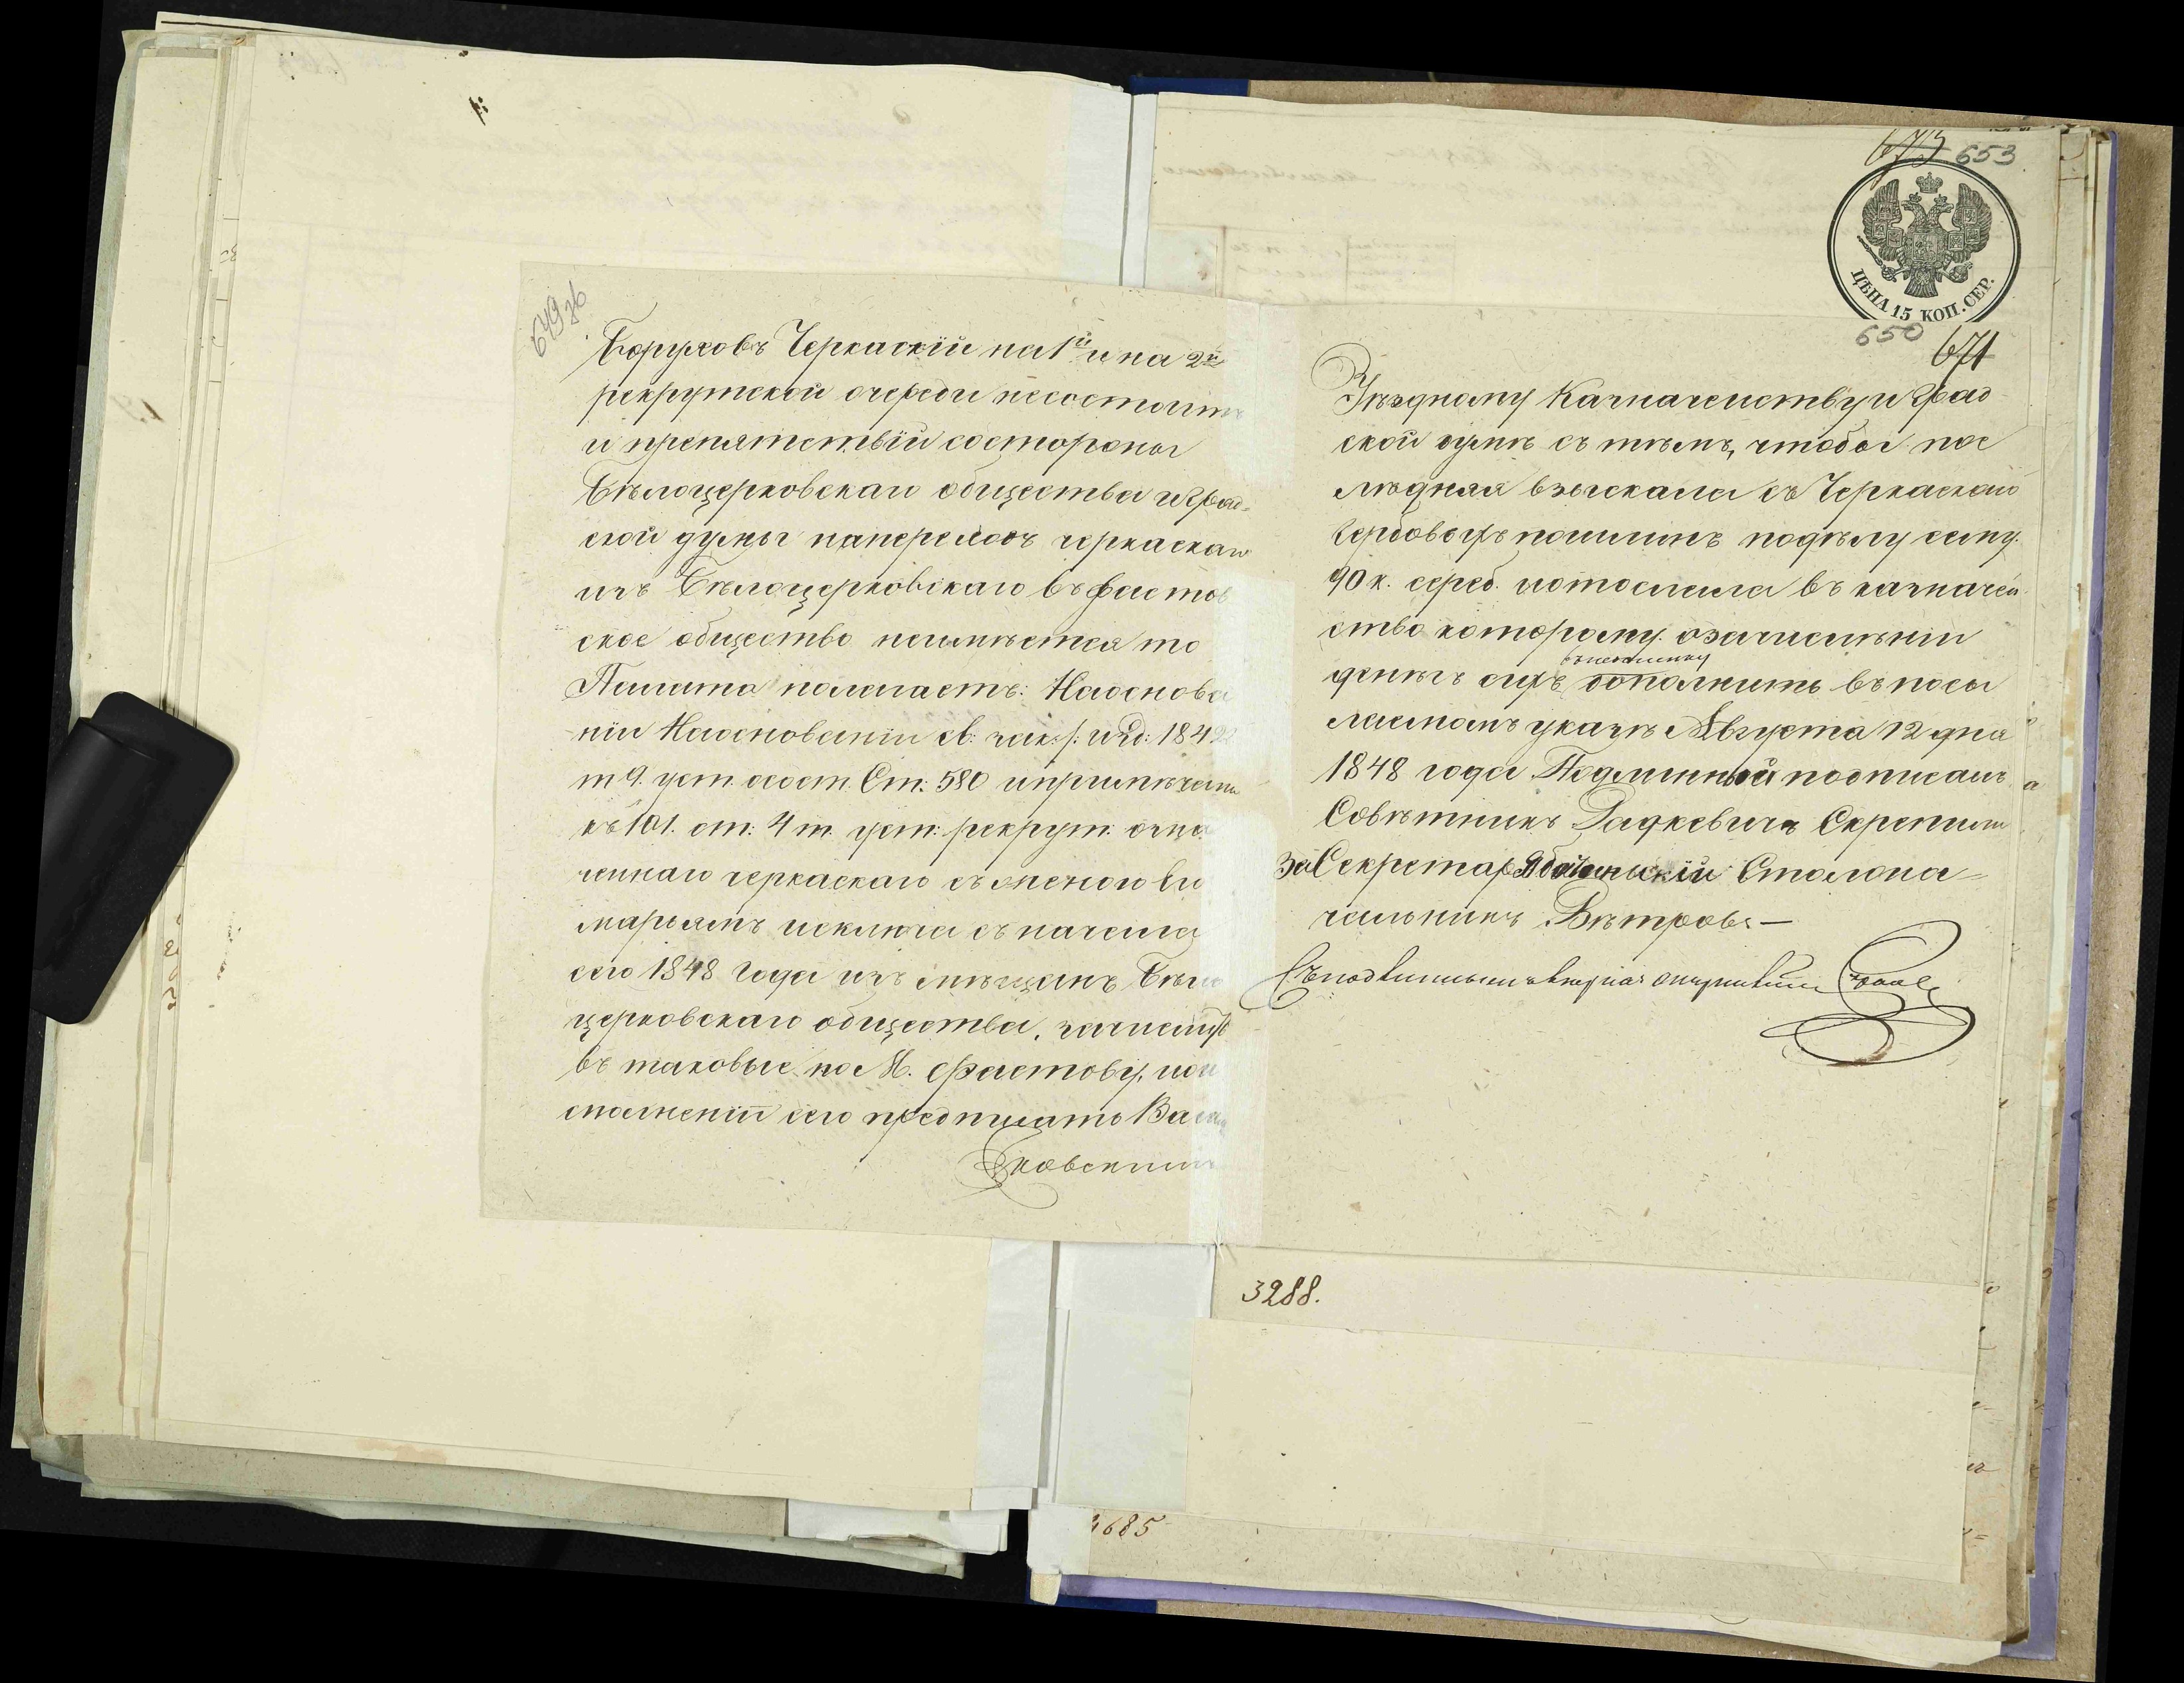 649 зв
Боруховъ Черкаскій на 1й и на 2й
рекрутской очереди несостоитъ
и препятствій состороны
Бѣлоцерковскаго общества и град-
ской думы на переходъ черкаскаго
изъ Бѣлоцерковскаго въ Фастов
ское общество неимѣется то
Палата полагаетъ: Наоснова
ніи Наоснованіи св: зак: изд: 1842
т 9. уст. о сост. Ст: 580 и примѣчани
къ 101. ст: 4 т. уст: рекрут: озна
ченнаго черкаскаго съ женою
Марьямъ исключа съ начала
сего 1848 года изъ мѣщанъ Бѣло
церковскаго общества, зачислить
въ таковые по М. Фастову, ио и
сполненіи сего предписать Василь
ковскимъ
673 653
ЦѢНА 15 КОП. СЕР.
650 671
Уѣздному Казначеиству и Град
ской думѣ съ тѣмъ, чтобы пос
лѣдняя взыскала съ Черкаскаго
Гербовыхъ пошлинъ по дѣлу сему
90 к. сереб. и отослала въ казначей
ство которому о зачисленіи
денегъ сихъ дополнить въ посы
лаемомъ указѣ Августа 12 дня
1848 года Подлинный подписалъ
Совѣтникъ Радкевичъ Скрепилъ
За Секретаря Столона=
чальникъ Вѣтровъ —
Съ подлиннымъ вѣрно
3288.
4685